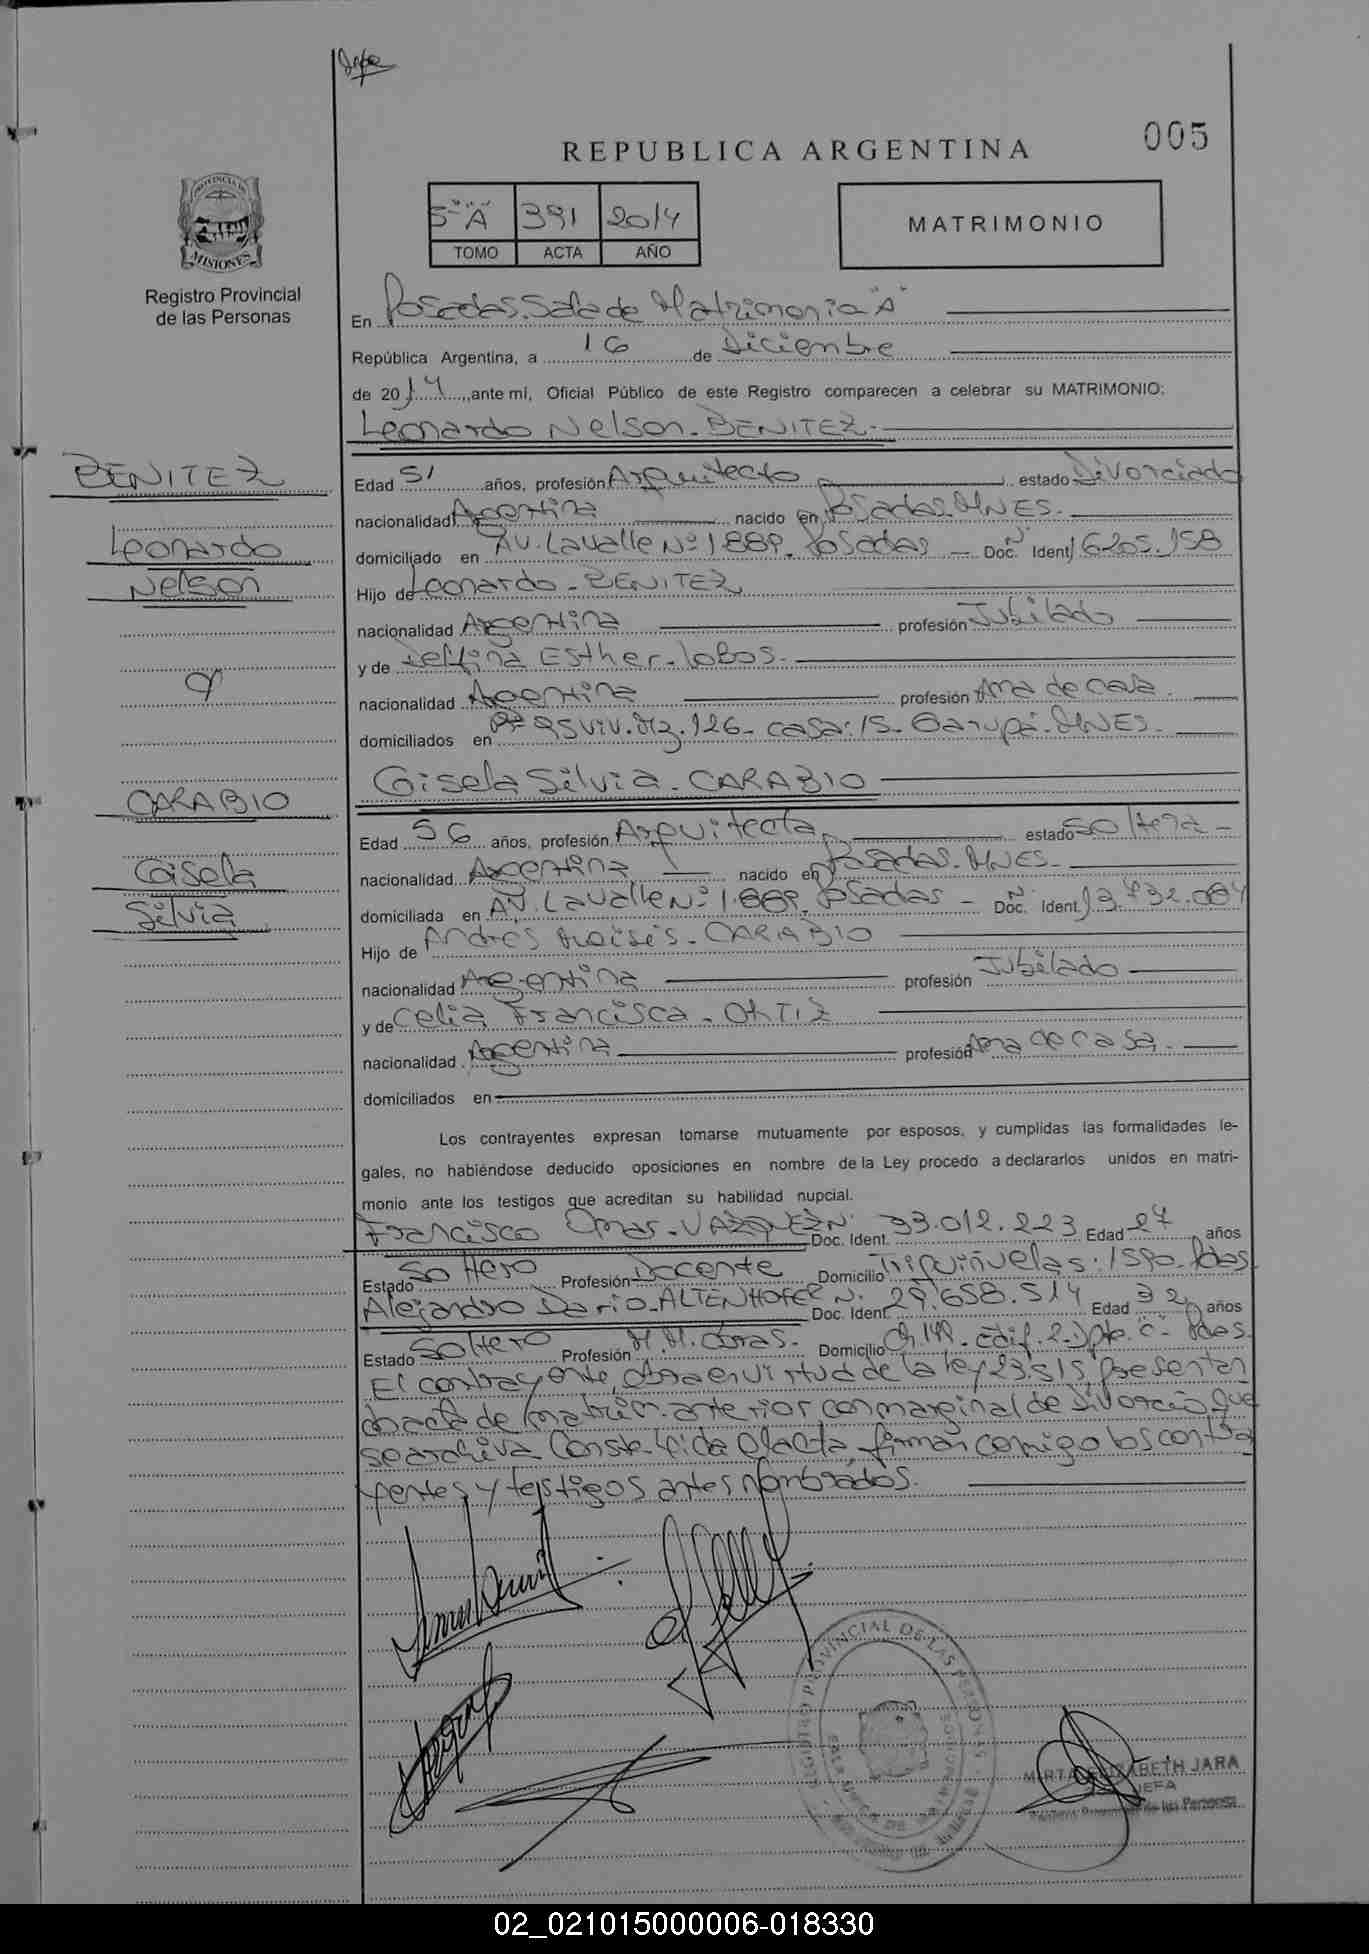 REPUBLICA ARGENTINA
005
PROVINCIA DE
MISIONES
Registro Provincial
de las Personas
5º "A" 391 2014
TOMO ACTA AÑO
MATRIMONIO
En Posadas. Sala de Matrimonio "A"
República Argentina, a 16 de Diciembre
de 2014, ante mi, Oficial Público de este Registro comparecen a celebrar su MATRIMONIO:
Leonardo Nelson. BENITEZ.
BENITEZ
Leonardo
Nelson
Y
CARABIO
Gisela
Silvia
Edad 51 años, profesión Arquitecto estado Divorciado
nacionalidad Argentina nacido en Posadas. MNES.
domiciliado en AV. Lavalle Nº 1889. Posadas - Doc. Ident. N: 16205.158
Hijo de Leonardo - BENITEZ
nacionalidad Argentina profesión Jubilado
y de Delfina Esther. Lobos.
nacionalidad Argentina profesión Ama de casa.
domiciliados en 95 viv. Mz. 126 - casa: 15 - Garupá. MNES.
Gisela Silvia. CARABIO
Edad 56 años, profesión Arquitecta, estado Soltera -
nacionalidad Argentina nacido en Posadas. MNES.
domiciliada en AV. Lavalle Nº 1.889. Posadas - Doc. Ident. N: 13.732.084
Hijo de Andres Moisés - CARABIO
nacionalidad Argentina profesión Jubilado
y de Celia Francisca - ORTIZ
nacionalidad Argentina profesión Ama de casa.
domiciliados en
Los contrayentes expresan tomarse mutuamente por esposos, y cumplidas las formalidades le-
gales, no habiéndose deducido oposiciones en nombre de la Ley procedo a declararlos unidos en matri-
monio ante los testigos que acreditan su habilidad nupcial.
Francisco Omar - VAZQUEZ Doc. Ident. N: 33.012.223 Edad 27 años
Estado Soltero Profesión Docente Domicilio Triquiñuelas: 1590. Pdas.
Alejandro Dario - ALTENHOFER Doc. Ident. N: 29.658.514 Edad 32 años
Estado Soltero Profesión M. M. Obras. Domicilio Ch. 149. Edif. 2. Dpto. "C" - Pdas.
El contrayente, obra en virtud de la ley 23.515, presentan
do acta de matrim. anterior con marginal de divorcio que
se archiva. Conste. Leida el acta, firman conmigo los contra
yentes y testigos antes nombrados.
REGISTRO PROVINCIAL DE LAS PERSONAS
MIRTA ELIZABETH JARA
JEFA
Registro Provincial de las Personas
02_021015000006-018330